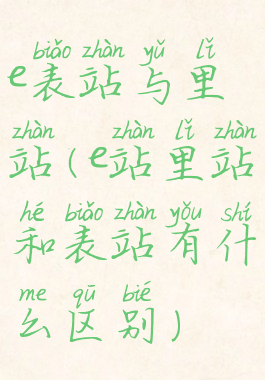 biǎo zhàn yǔ lǐ
e表站与里
zhàn zhàn lǐ zhàn
站(e站里站
hé biǎo zhàn yǒu shí
和表站有什
me qū bié
么区别)